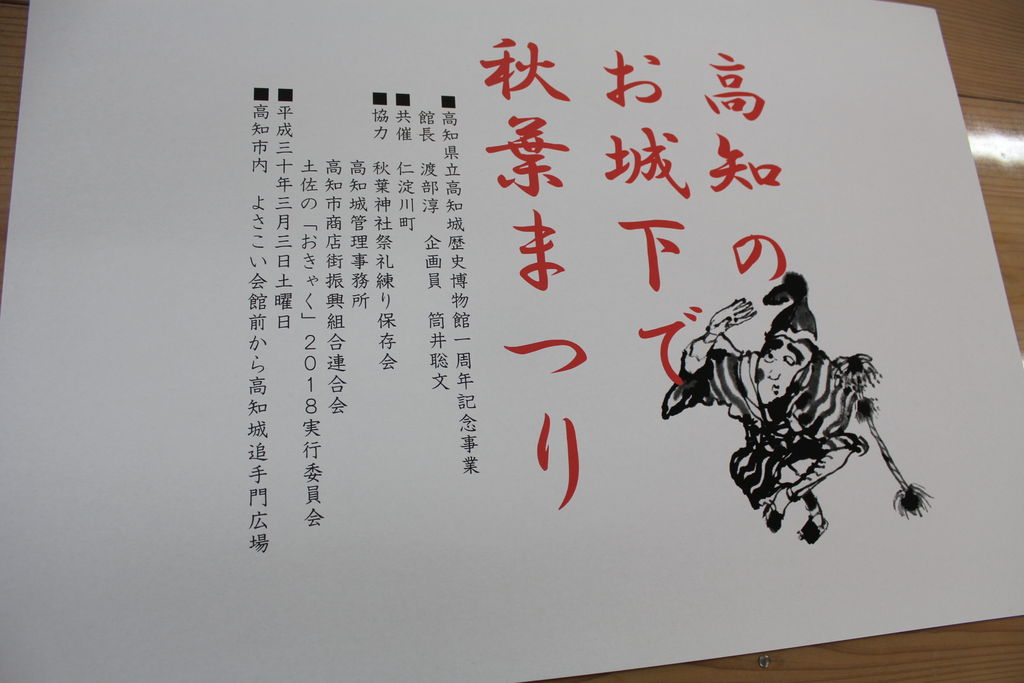 高知の
お城下で
秋葉まつり
■高知県立高知城歴史博物館一周年記念事業
館長 渡部淳 企画員 筒井聡文
■共催 仁淀川町
■協力 秋葉神社祭礼練り保存会
高知城管理事務所
高知市商店街振興組合連合会
土佐の「おきゃく」2018実行委員会
■平成三十年三月三日土曜日
■高知市内 よさこい会館前から高知城追手門広場